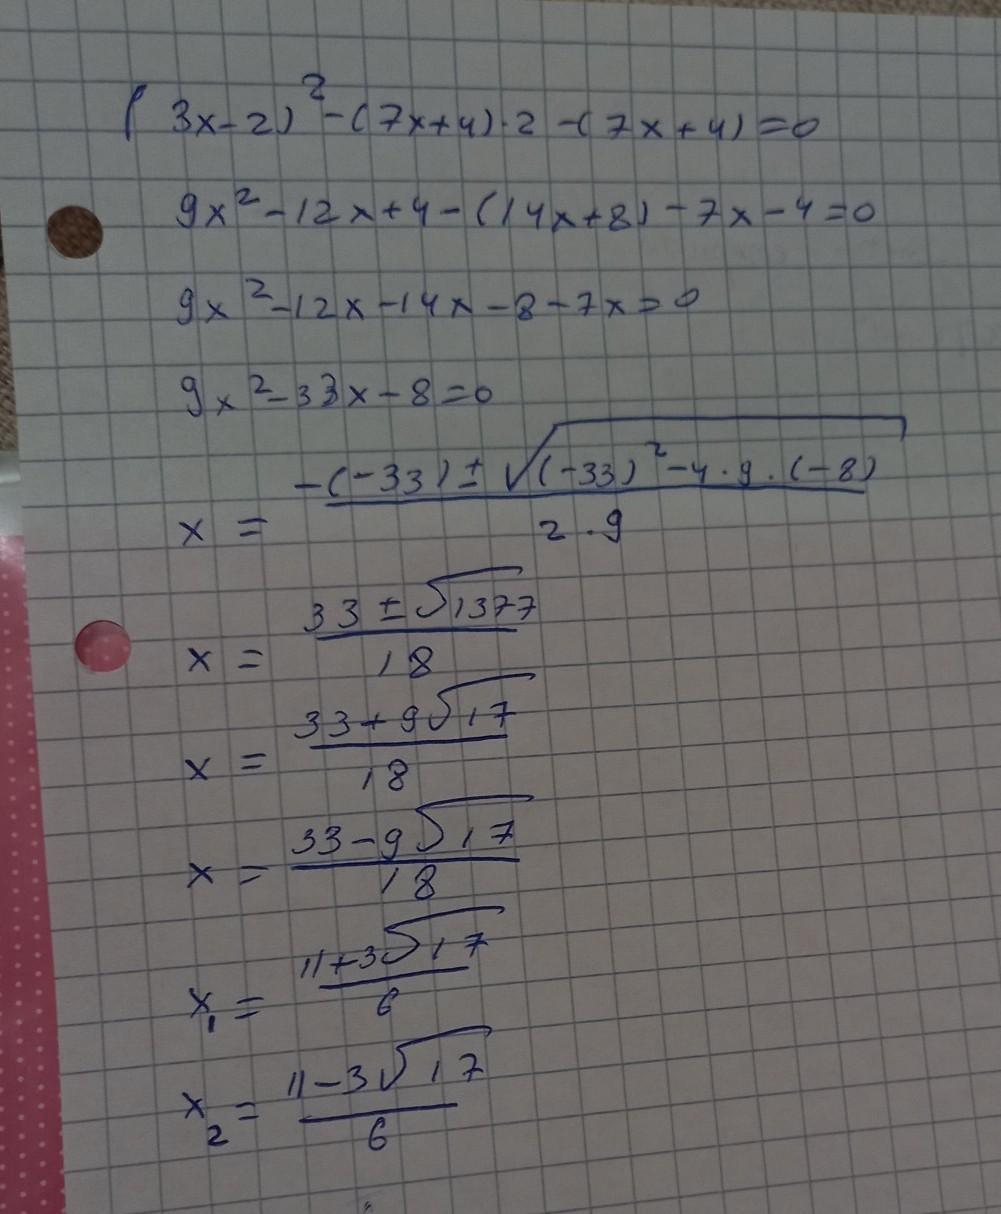 (3x-2)²-(7x+4)·2-(7x+4)=0
9x²-12x+4-(14x+8)-7x-4=0
9x²-12x-14x-8-7x=0
9x²-33x-8=0
x = (-(-33)±√((-33)²-4·9·(-8)))/(2·9)
x = (33±√1377)/18
x = (33+9√17)/18
x = (33-9√17)/18
x₁ = (11+3√17)/6
x₂ = (11-3√17)/6